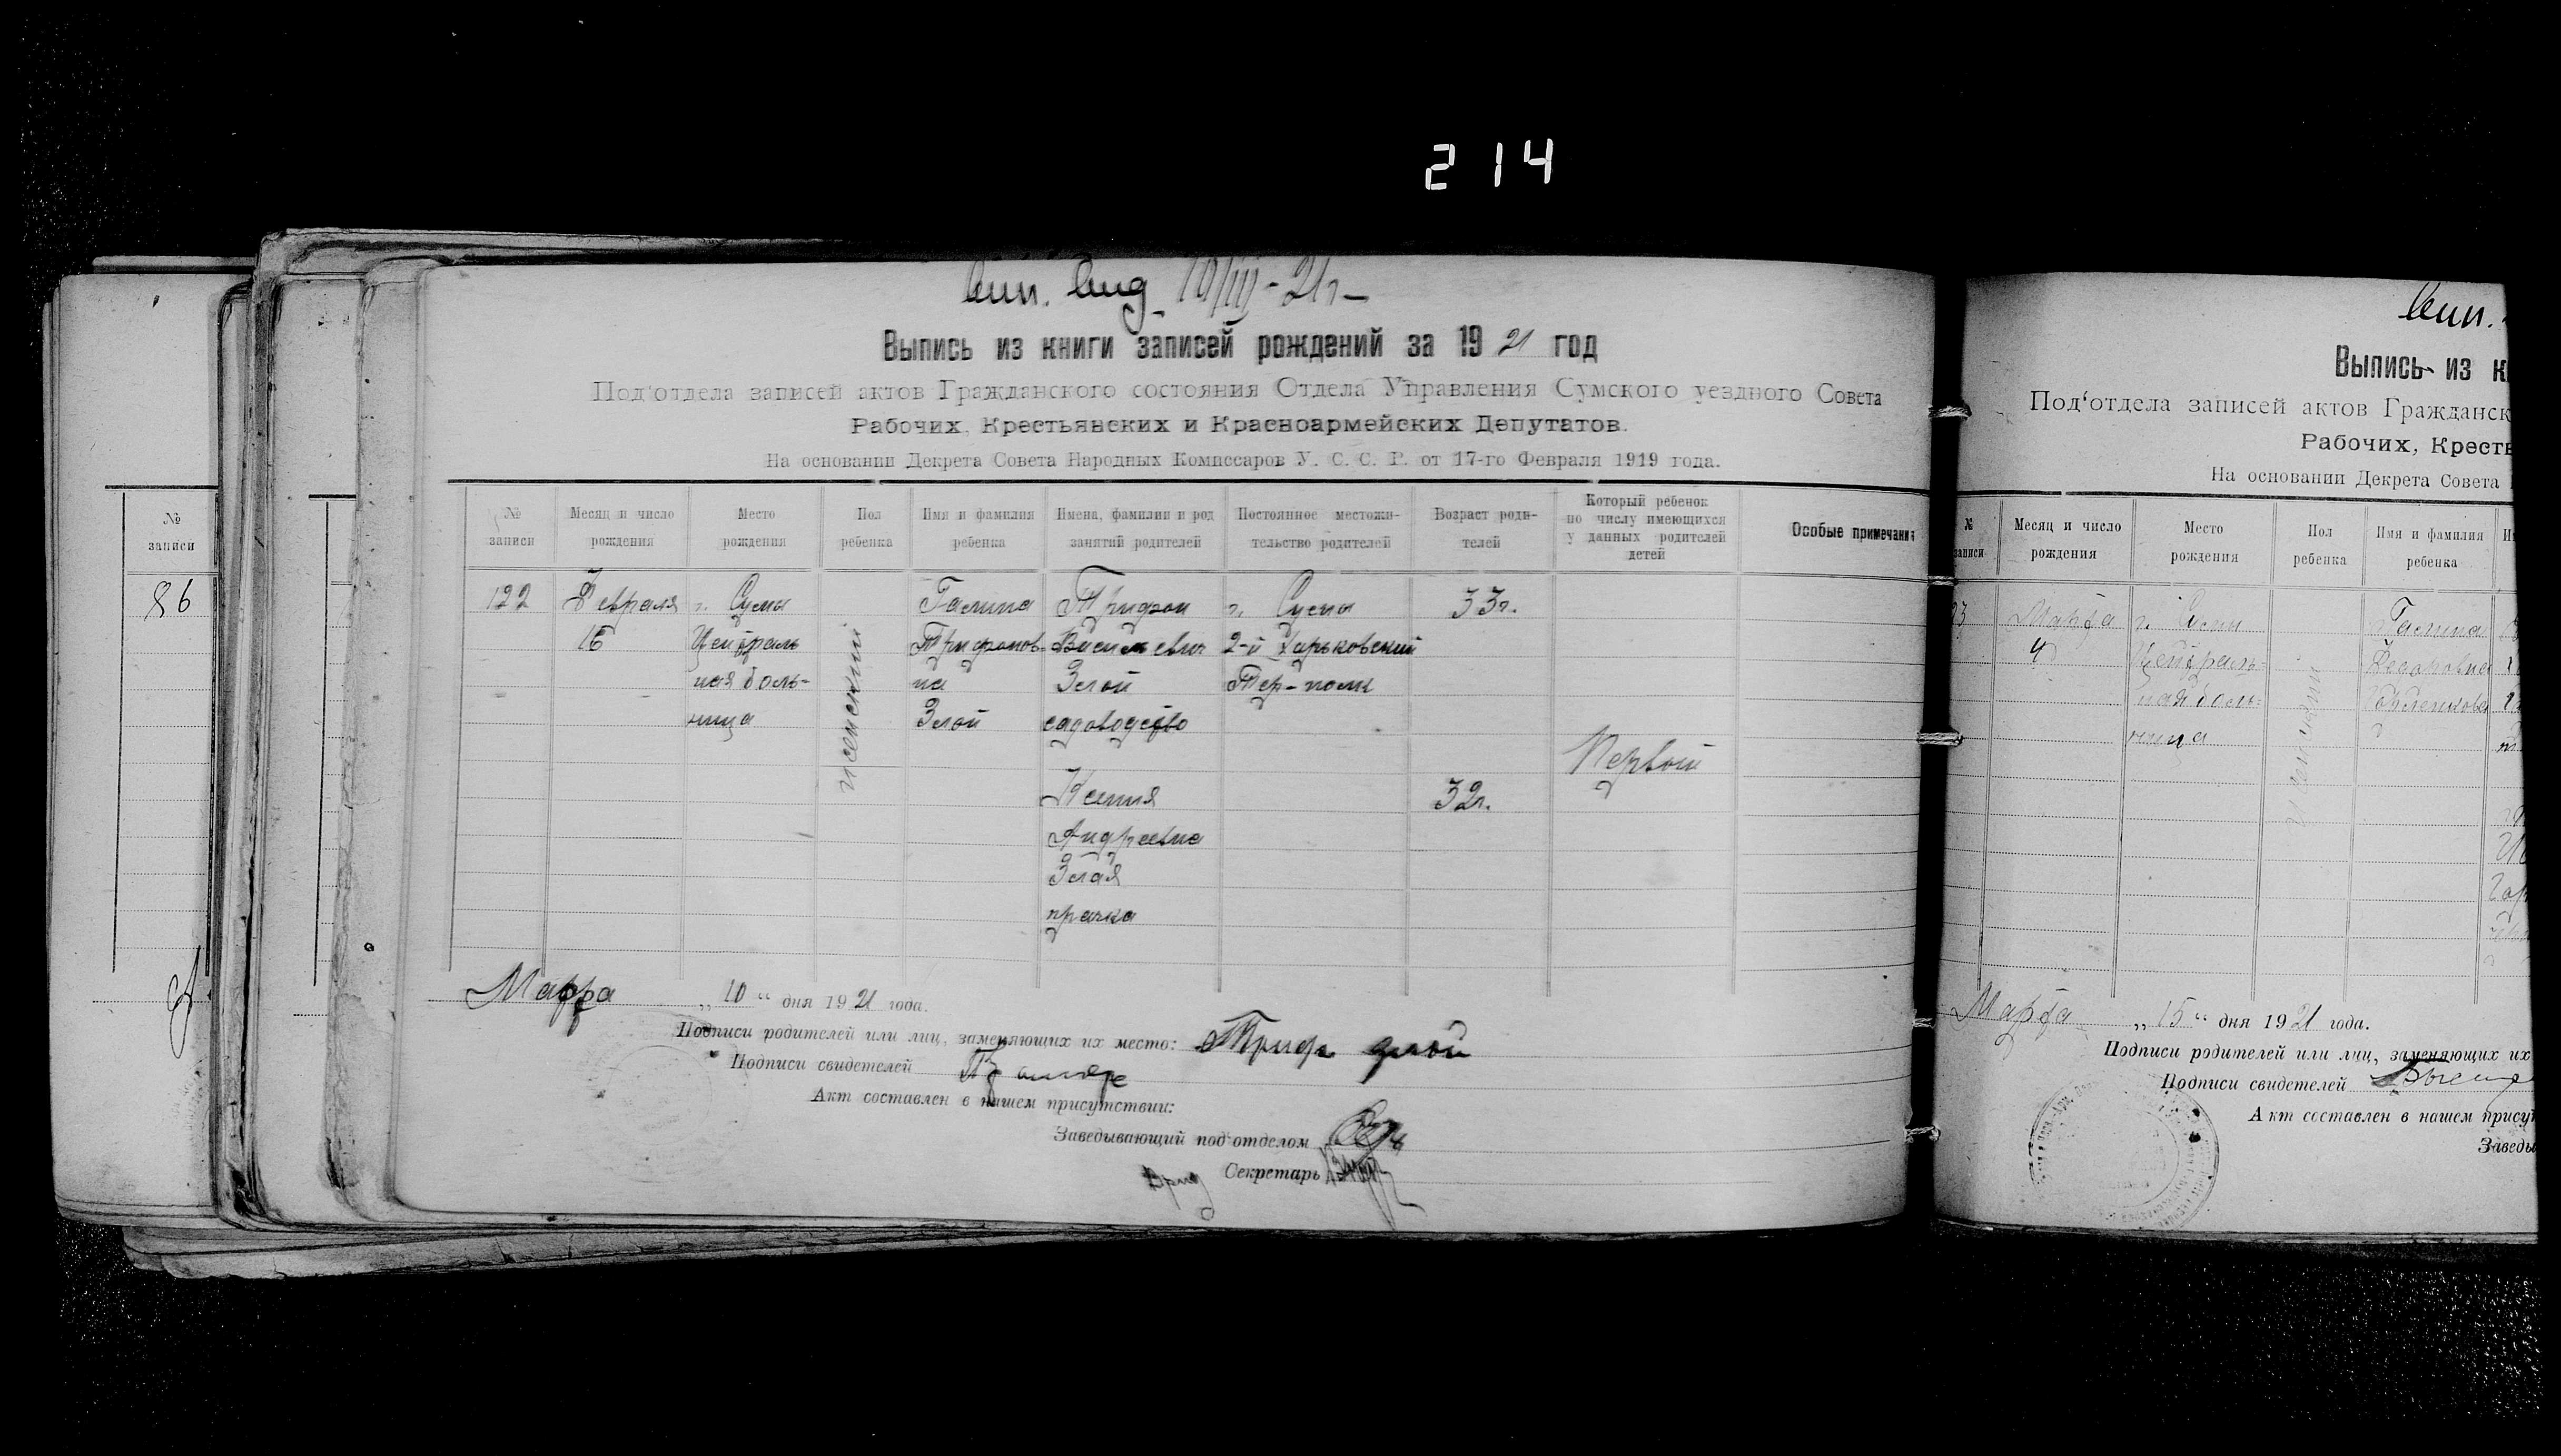 214
10/III-21г-
Выпись из книги записей рождений за 1921 год
Под'отдела записей актов Гражданского состояния Отдела Управления Сумского уездного Совета
Рабочих, Крестьянских и Красноармейских Депутатов.
На основании Декрета Совета Народных Комиссаров У. С. С. Р. от 17-го Февраля 1919 года.
№ записи
Месяц и число рождения
Место рождения
Пол ребенка
Имя и фамилия ребенка
Имена, фамилии и род занятий родителей
Постоянное местожительство родителей
Возраст родителей
Который ребенок по числу имеющихся у данных родителей детей
Особые примечания
122
Февраля
16
г. Сумы
Централь
ная боль-
ница
женский
Галина
Трифонов-
на
Злой
Трифон
Васильевич
Злой
садоводство
Ксения
Андреевна
Злая
прачка
г. Сумы
2-й Харьковский
Тер-полк
33г.
32г.
Первый
Марта „10“ дня 1921 года.
Подписи родителей или лиц, заменяющих их место: Триф злой
Подписи свидетелей
Акт составлен в нашем присутствии:
Заведывающий под'отделом
Врид Секретарь
№
записи
86
Выпись из к
Под'отдела записей актов Гражданск
Рабочих, Кресть
На основании Декрета Совета
№ записи
Месяц и число рождения
Место рождения
Пол ребенка
Имя и фамилия ребенка
Марта
4
г. Сумы
Централь-
ная боль-
ница
женский
Галина
Федоровна
Марта „15“ дня 1921 года.
Подписи родителей или лиц, заменяющих их
Подписи свидетелей
Акт составлен в нашем присут
Заведы